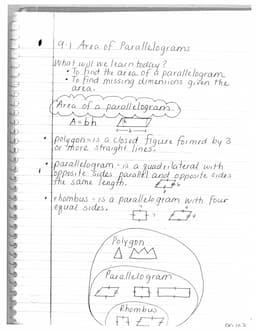 9.1 Area of Parallelograms
What will we learn today?
• To find the area of a parallelogram
• To find missing dimensions given the
area.
Area of a parallelogram
A = bh
• polygon - is a closed figure formed by 3
or more straight lines.
• parallelogram - is a quadrilateral with
opposite sides parallel and opposite sides
the same length.
• rhombus - is a parallelogram with four
equal sides.
Polygon
Parallelogram
Rhombus